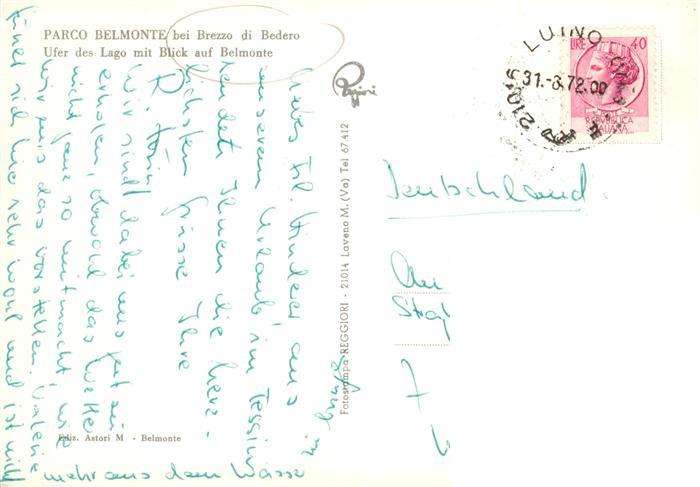 PARCO BELMONTE bei Brezzo di Bedero
Ufer des Lago mit Blick auf Belmonte
Reggiori
Liebes Frl. Kinderer, aus
unserem Urlaub im Tessin
sendet Ihnen die herz-
lichsten Grüsse Ihre
Wir sind dabei uns gut zu
erholen, obwohl das Wetter
nicht ganz so mitmacht, wie
wir uns das vorstellen. Valerie
fühlt sich hier sehr wohl und ist nicht
mehr aus dem Wasser
zu bringen
Ediz. Astori M - Belmonte
Fotostampa REGGIORI - 21014 Laveno M. (Va) Tel 67412
21016 LUINO
31.-8.72.00
LIRE 40
REPVBBLICA
ITALIANA
Deutschland
An